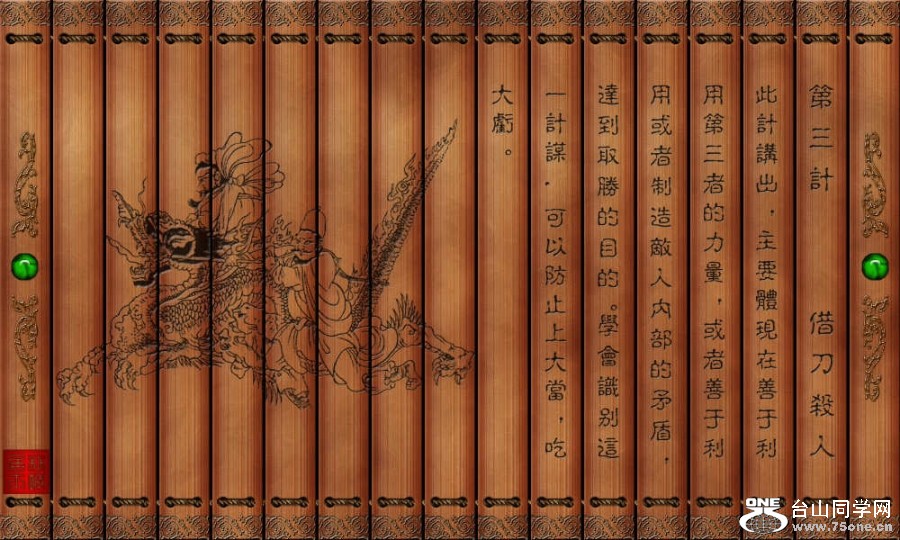 第三計 借刀殺人
此計講出，主要體現在善于利
用第三者的力量，或者善于利
用或者制造敵人内部的矛盾，
達到取勝的目的。學會識别這
一計謀，可以防止上大當，吃
大虧。
ONE
台山同学网
www.75one.cn